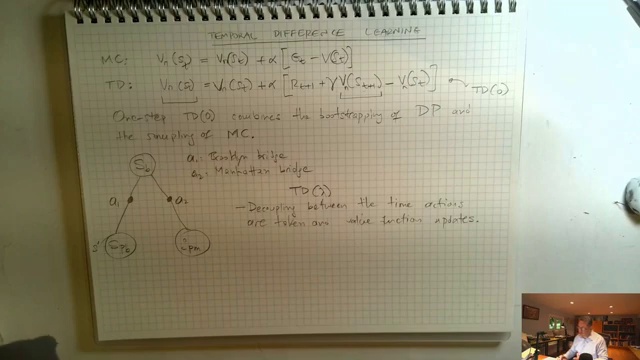 TEMPORAL DIFFERENCE LEARNING
MC: Vπ(St) = Vπ(St) + α [Gt − V(St)]
TD: Vπ(St) = Vπ(St) + α [Rt+1 + γVπ(St+1) − Vπ(St)] TD(0)
One-step TD(0) combines the bootstrapping of DP and
the sampling of MC.
a1: Brooklyn bridge
a2: Manhattan bridge
TD(λ)
- Decoupling between the time actions
are taken and value function updates.
a1 a2
s'